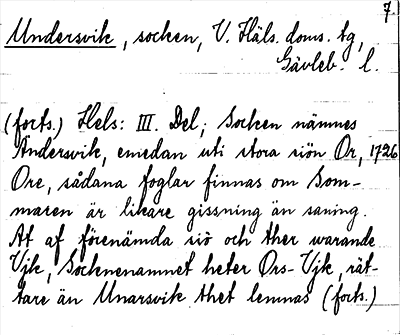 7.
Undersvik, socken, V. Häls. doms. tg,
Gävleb. l.
(forts.) Hels: III. Del; Socken nämnes
Andersvik, emedan uti stora siön Or, 1726
Ore, sådana foglar finnas om Som-
maren är likare gissning än saning.
At af förenämda siö och ther warande
Vjk, Sochnenamnet heter Ors-Vjk, rät-
tare än Unarsvik thet lemnas (forts.)